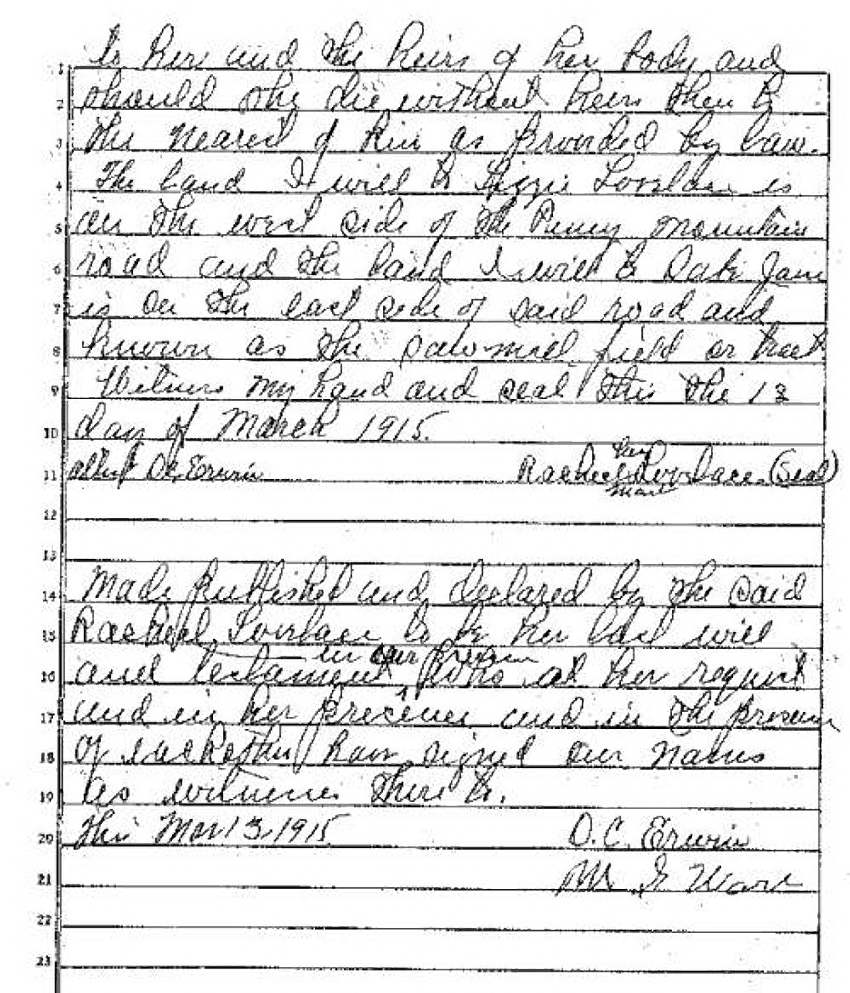 to her and the heirs of her body and
1 should she die without heirs then to
2 the nearest of kin as provided by law.
3 The land I will to Lizzie Lovelace is
4 on the west side of the Piney mountain
5 road and the land I will to Jane
6 is on the east side of said road and
7 known as the sawmill field or tract
8 Witness my hand and seal this the 13
9 day of March 1915.
10 Attest O.C. Erwin Rachel her mark Lovelace (Seal)
11
12
13 Made published and declared by the said
14 Rachel Lovelace to be her last will
15 and testament in our presence who at her request
16 and in her presence and in the presence
17 of each other have signed our names
18 as witnesses there to.
19 This Mar 13, 1915
20 O.C. Erwin
21 M. Ward
22
23